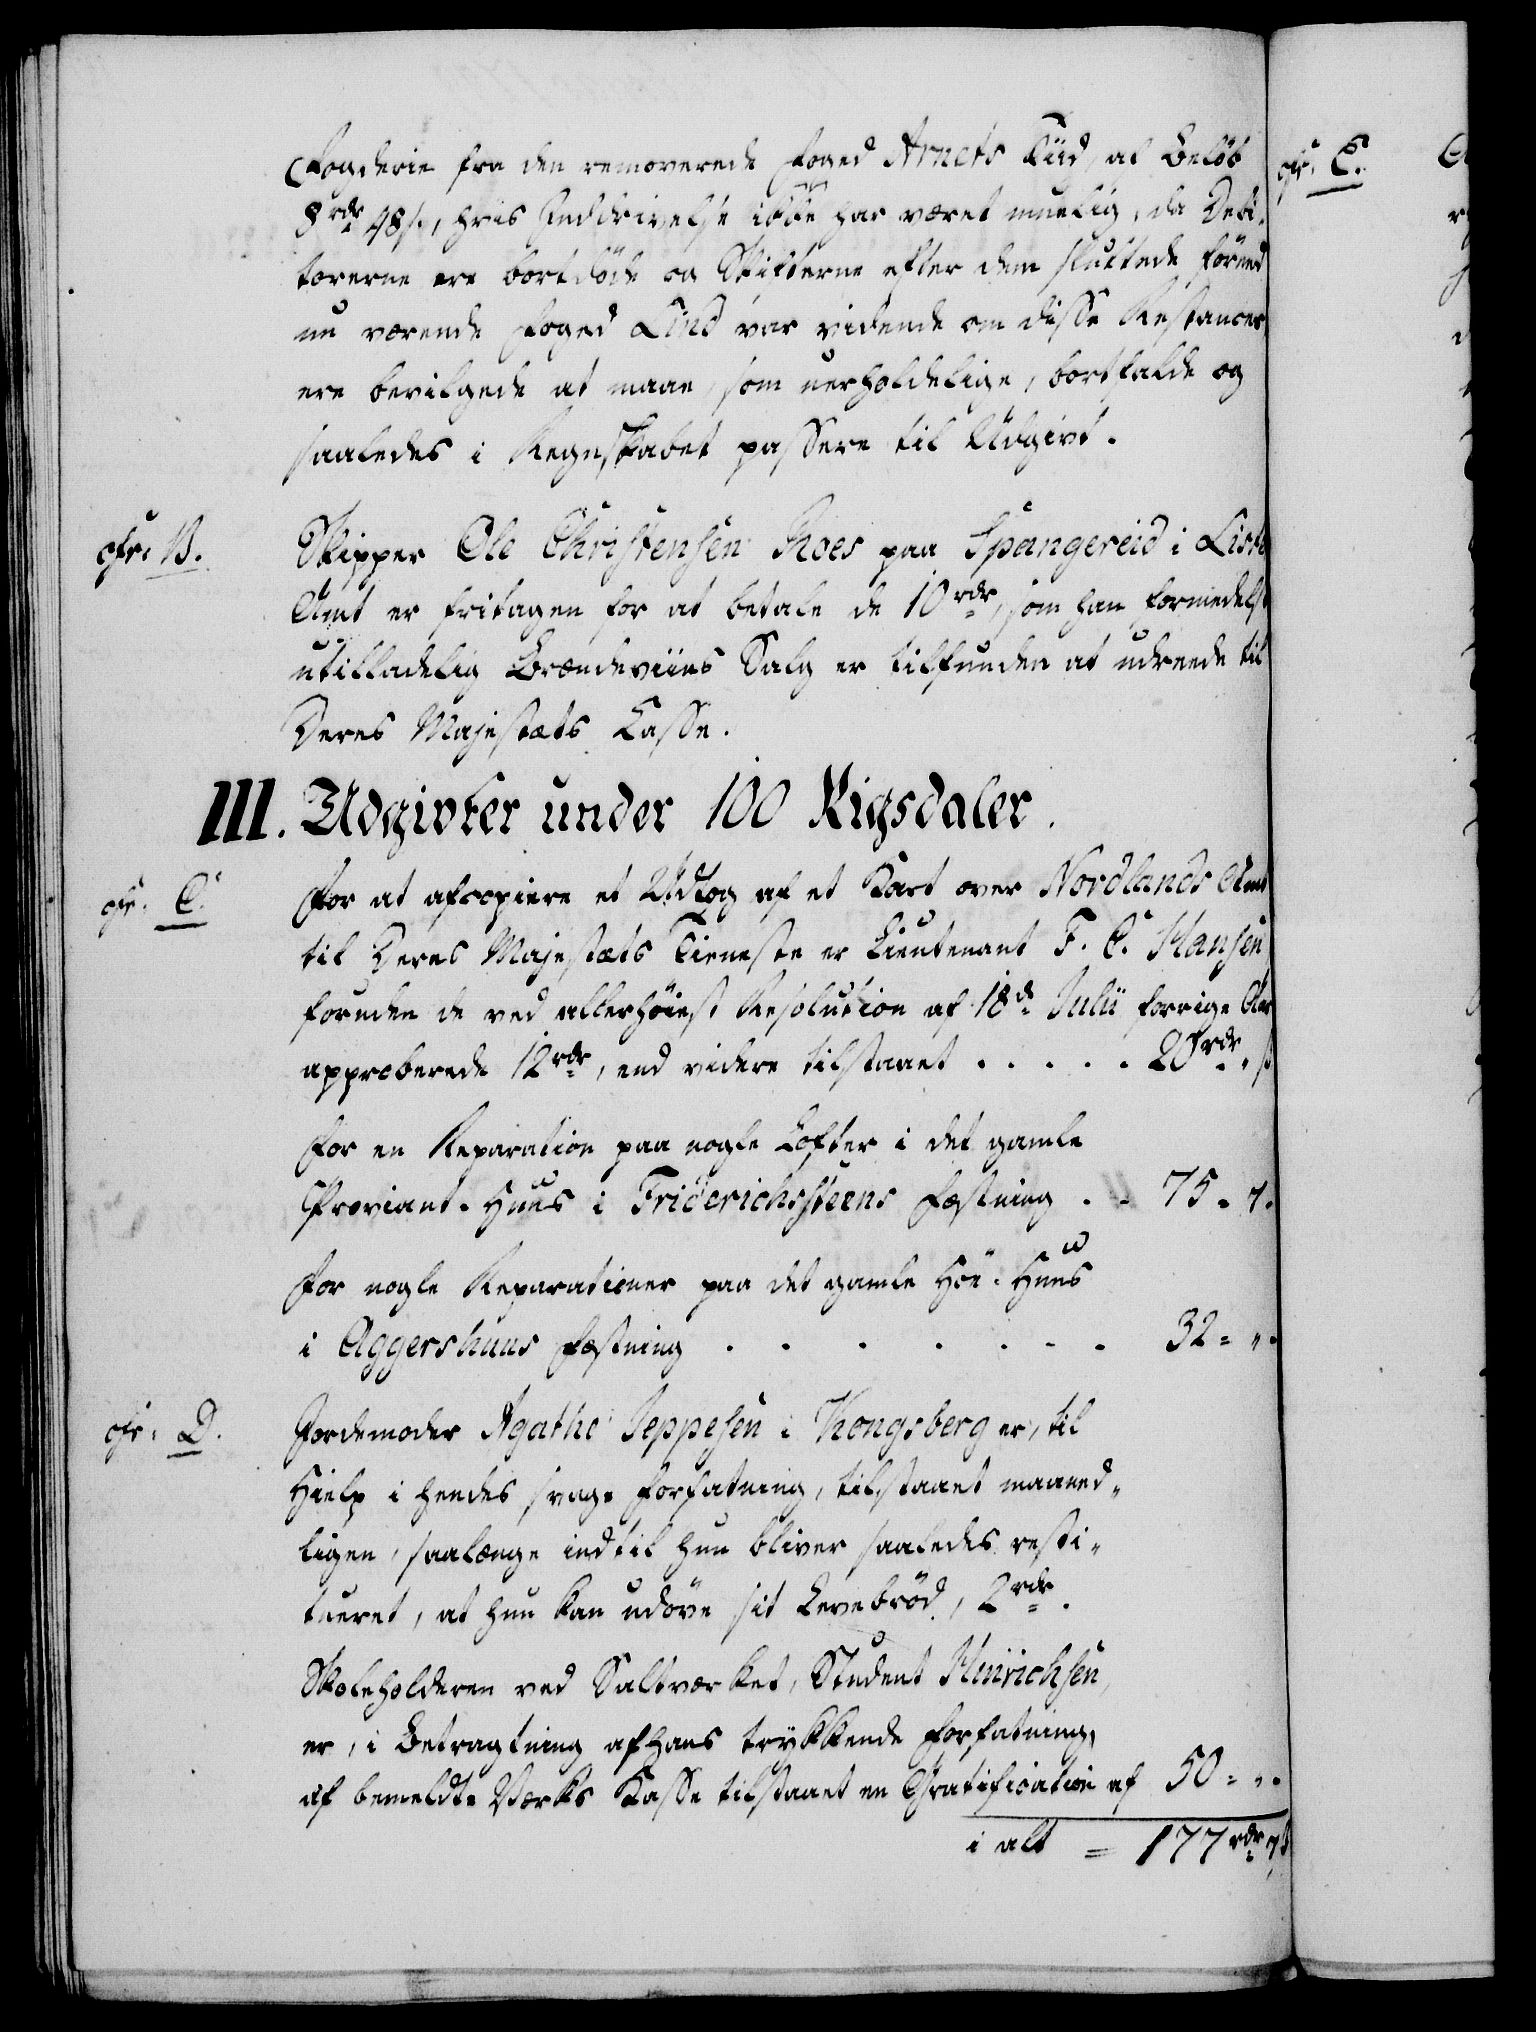 Fogderie fra den removerede Foged Arnets Tiid, af Beløb
8 rdr 48 s., hvis Inddrivelse ikke har været muelig, da Debi-
torerne ere bortdøde og Skifterne efter dem sluttede førend
nu værende Foged Lind var vidende om disse Restancer,
ere bevilgede at maae, som uerholdelige, bortfalde og
saaledes i Regnskabet passere til Udgivt.
cfr. B.
Skipper Ole Christensen Roes paa Spangereid i Liste
Amt er fritagen for at betale de 10 rdr, som han formedelst
utilladelig Brændeviins Salg er tilfunden at udreede til
Deres Majestæts Casse.
III. Udgivter under 100 Rigsdaler.
cfr. C.
For at afcopiere et Udtog af et Kart over Nordlands Amt
til Deres Majestæts Tieneste er Lieutenant F. C. Hansen
foruden de ved allerhøiest Resolution af 18de Julii forrige Aar
approberede 12 rdr, end videre tilstaaet . . . . . 20 rdr „ s
For en Reparation paa nogle Lofter i det gamle
Proviant-Huus i Friderichssteens Fæstning . . 75 - 7.
For nogle Reparationer paa det gamle Høe-Huus
i Aggershuus Fæstning . . . . . . . 32 - „.
cfr. D.
Jordemoder Agathe Jeppesen i Kongsberg er, til
Hielp i hendes svage Forfatning, tilstaaet maaned-
ligen, saalænge indtil hun bliver saaledes resti-
tueret, at hun kan udøve sit Levebrød, 2 rdr.
Skoleholderen ved Saltværket, Student Hinrichsen,
er, i Betragtning af hans trykkende Forfatning,
af bemeldte Værks Kasse tilstaaet en Gratification af 50 - „.
i alt = 177 rdr 7 s
cfr. E.